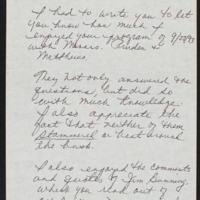 I had to write you to let
you know how much I
enjoyed your program of 7/27/93
with Messrs. Purden &
Matthews.
They not only answered the
questions, but did so
with much knowledge.
I also appreciate the
fact that neither of them
stammered or beat around
the bush.
I also enjoyed the comments
and quotes of Jim Bunning
which you read out of